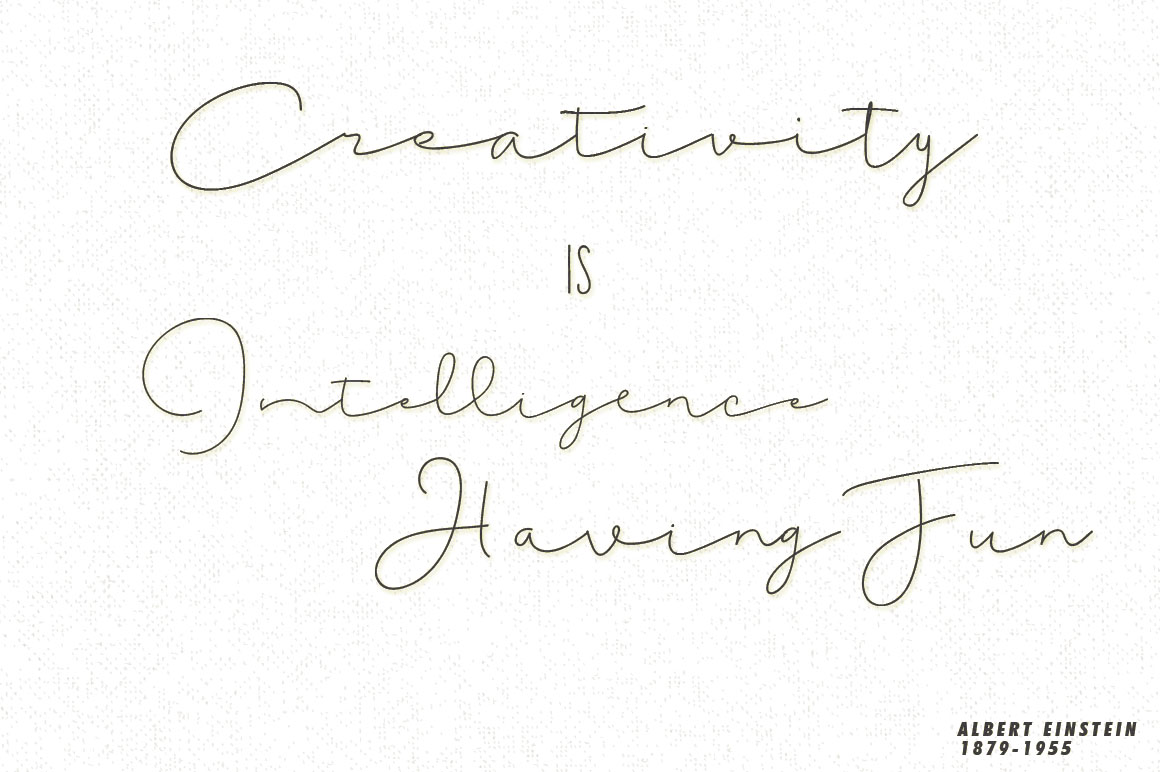 Creativity
IS
Intelligence
Having Fun
ALBERT EINSTEIN
1879-1955